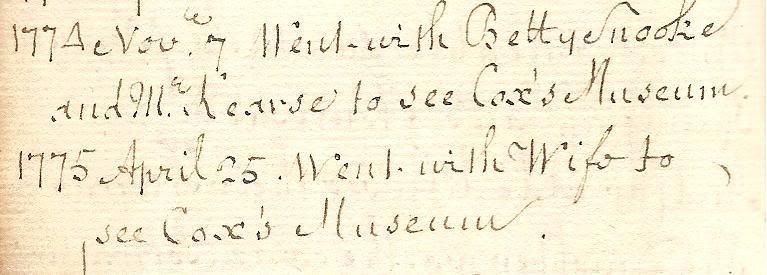 1774 Nov.r 7 Went with Betty Snooke
and Mr. Kearse to see Cox's Museum.
1775 April 25. Went with Wife to
see Cox's Museum.